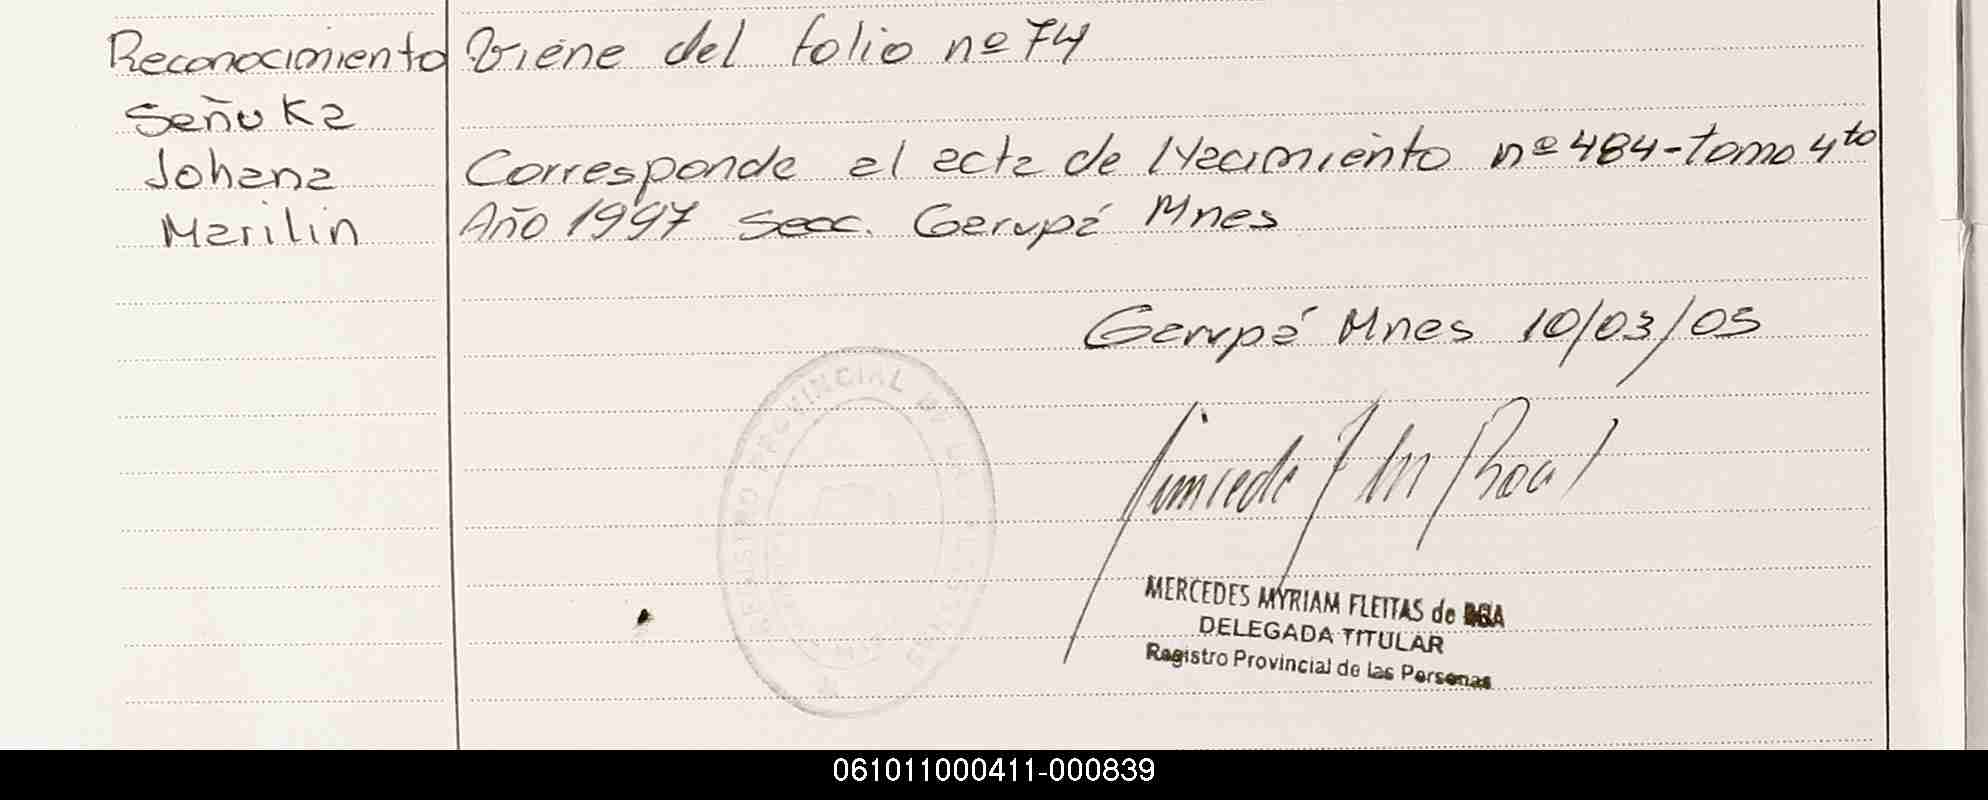 Reconocimiento
Señuka
Johana
Marilin
Viene del folio nº 74
Corresponde al acta de Nacimiento nº 484-tomo 4to
Año 1997 Secc. Garupá Mnes
Garupá Mnes 10/03/05
REGISTRO PROVINCIAL DE LAS PERSONAS
MERCEDES MYRIAM FLEITAS de
DELEGADA TITULAR
Registro Provincial de las Personas
061011000411-000839